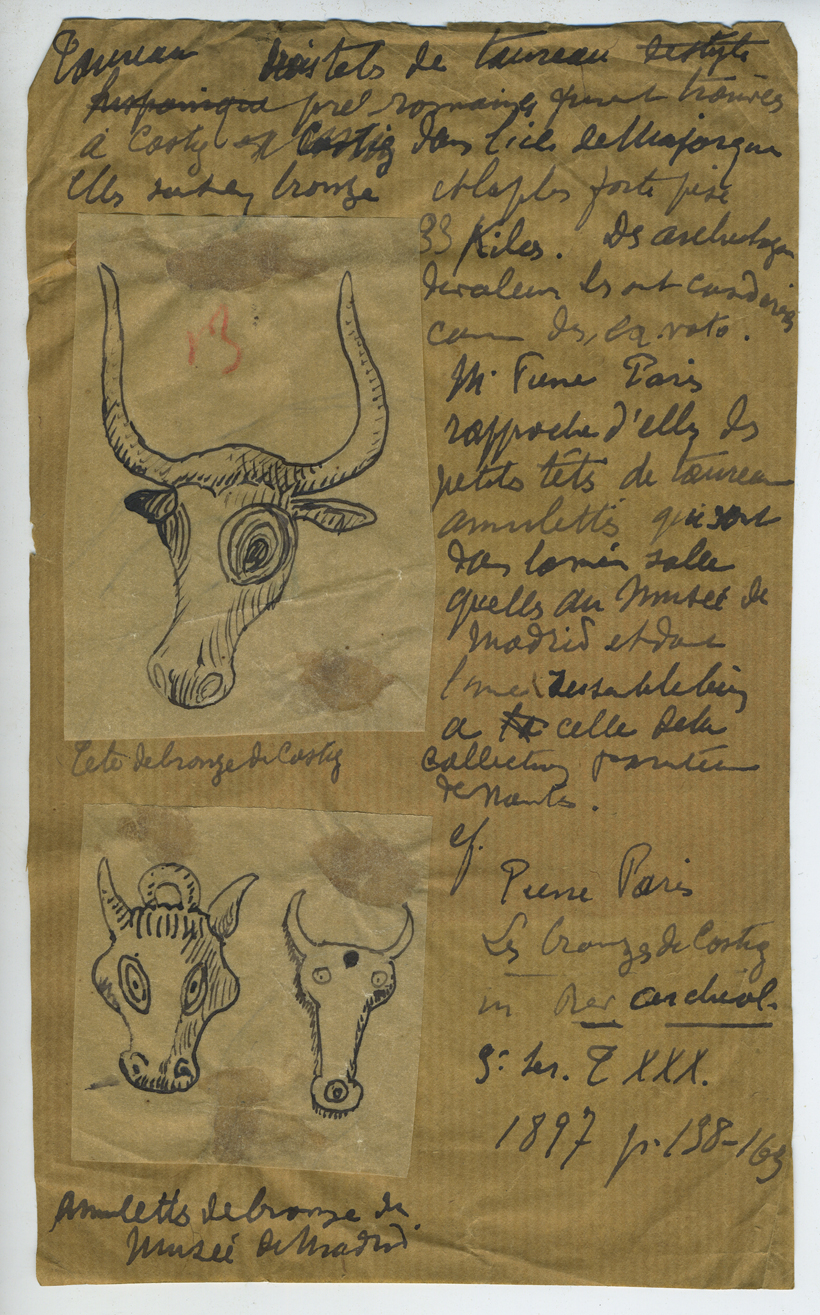 Taureau trois tets de taureau de style
hispanique pré romaines furent trouvées
à Costig en Costig dans l'île de Majorque
Elles sont en bronze et la plus forte pèse
33 Kilos. Des archéologues
de valeur les ont considérées
comme des ex voto.
13
M. Pierre Paris
rapproche d'elles des
petits têts de taureau
amulettes qui sont
dans la même salle
qu'elles au Musée de
Madrid et dont
l'une ressemble bien
a la celle de la
collection
de Nantes.
Tete de bronze de Costig
cf.
Pierre Paris
Les bronzes de Costig
in Rev archéol.
3e Ser. T XXX.
1897 p. 138-163
Amuletts de bronze du
Musée de Madrid.